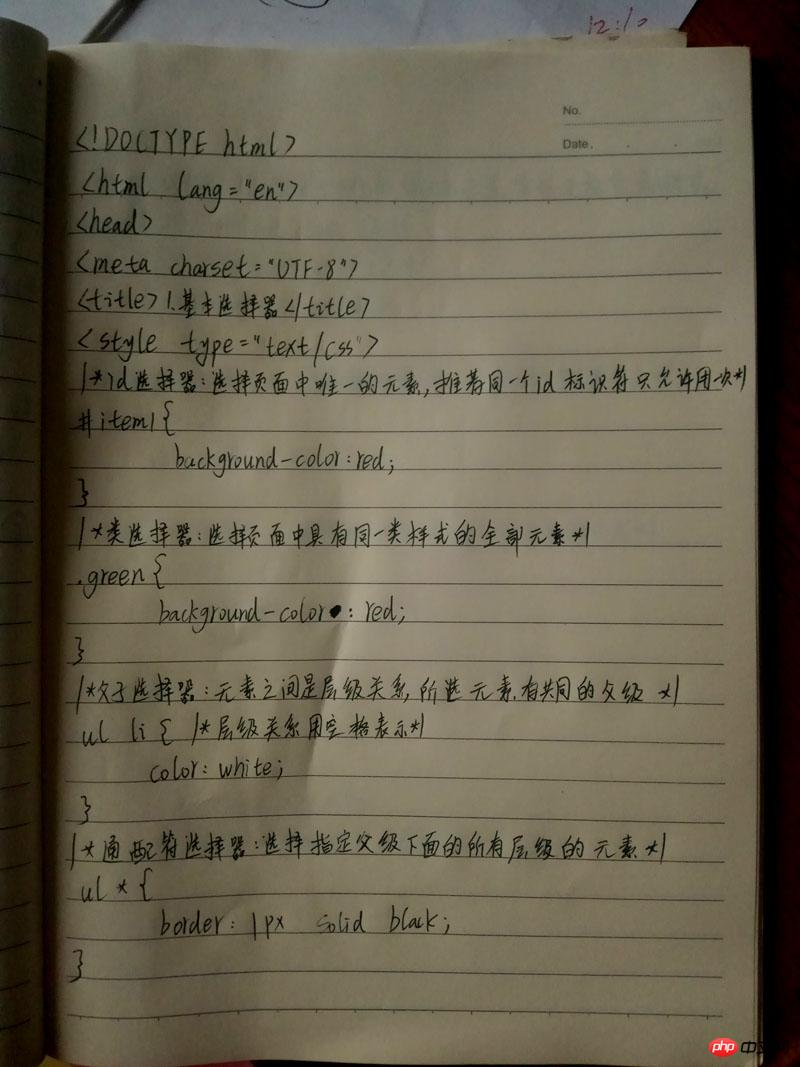 12:10
No.
Date.
<!DOCTYPE html>
<html lang="en">
<head>
<meta charset="UTF-8">
<title>1.基本选择器</title>
<style type="text/css">
/*id选择器:选择页面中唯一的元素,推荐同一个id标识符只允许用一次*/
#item1{
background-color:red;
}
/*类选择器:选择页面中具有同一类样式的全部元素*/
.green{
background-color:red;
}
/*父子选择器:元素之间是层级关系,所选元素有共同的父级*/
ul li{ /*层级关系用空格表示*/
color:white;
}
/*通配符选择器:选择指定父级下面的所有层级的元素*/
ul *{
border:1px solid black;
}
php 中文